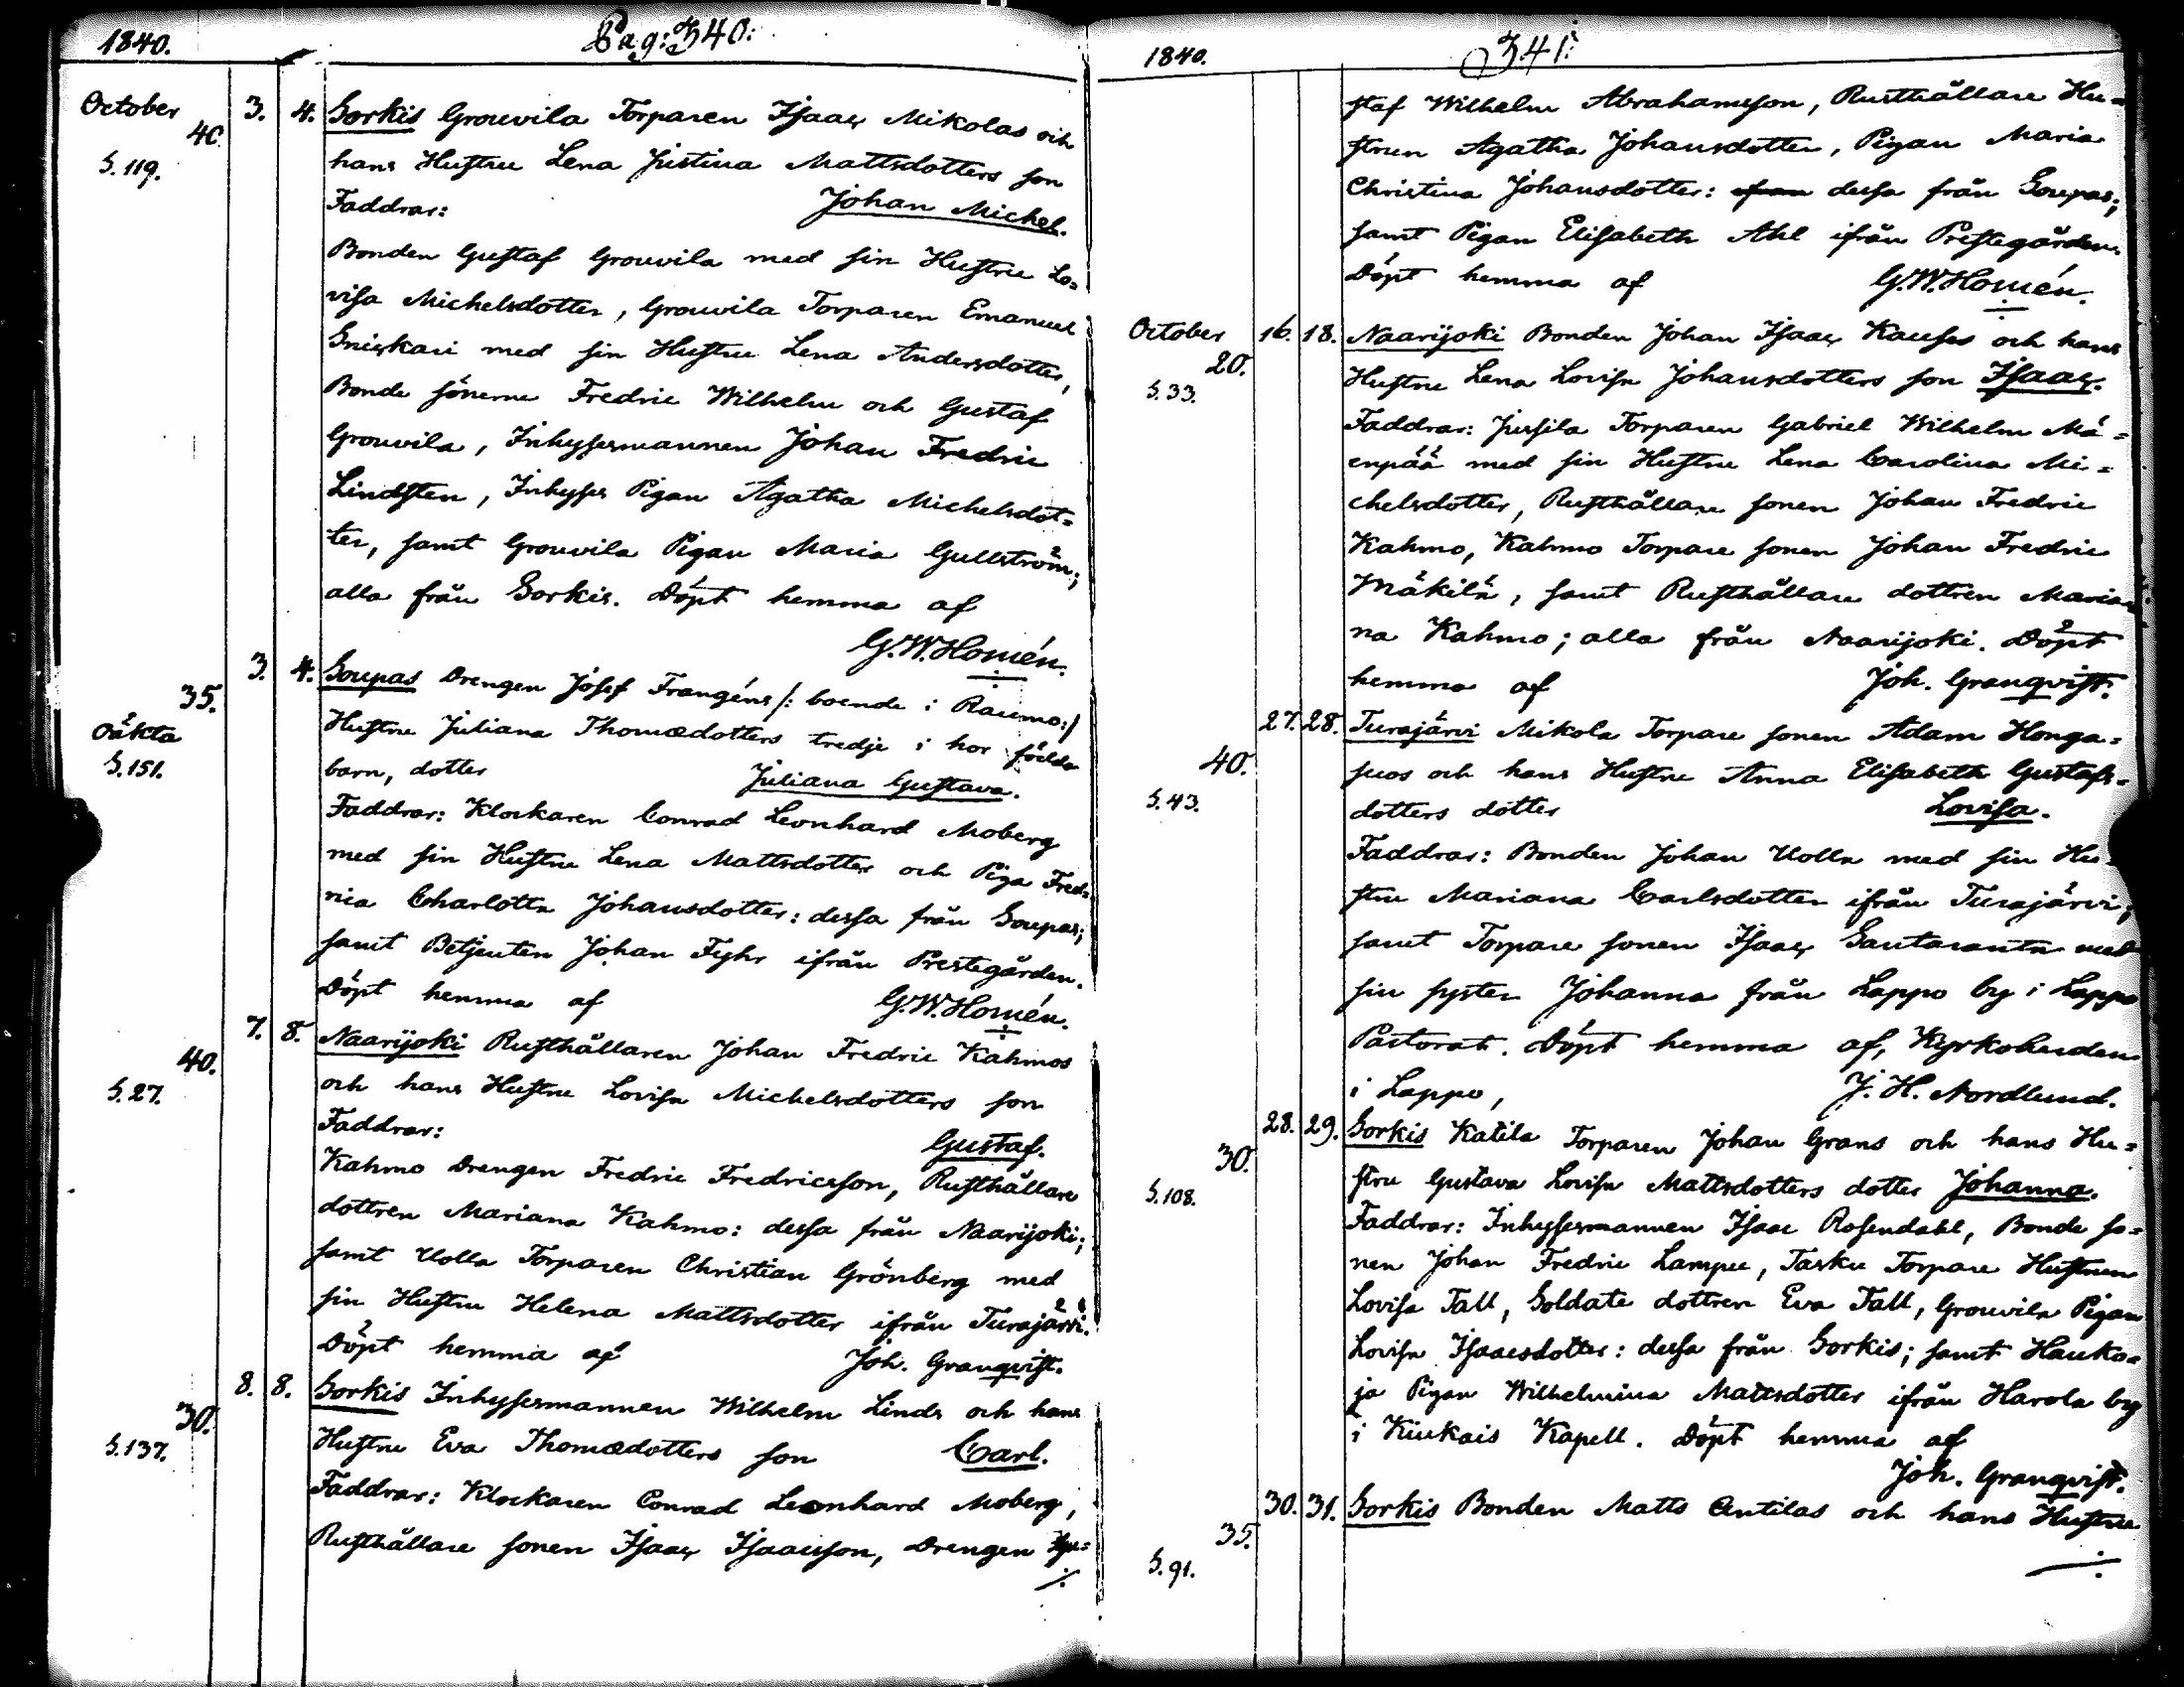 1840.
Pag: 340:
October 3. 4. Sorkis Grouvila Torparen Isaac Mikolas och
40.
S. 119. hans Hustru Lena Justina Mattsdotters son
Faddrar: Johan Michel.
Bonden Gustaf Grouvila med sin Hustru Lo=
visa Michelsdotter, Grouvila Torparen Emanuel
med sin Hustru Lena Andersdotter,
Bonde sönerne Fredric Wilhelm och Gustaf
Grouvila, Inhysesmannen Johan Fredric
Lindsten, Inhyses Pigan Agatha Michelsdot=
ter, samt Grouvila Pigan Maria Gullström;
alla från Sorkis. Döpt hemma af
G.W. Homén.
3. 4. Soupas Drengen Josef Frangéns /: boende i Raumo :/
35.
Oäkta Hustru Juliana Thomædotters tredje i hor födda
S. 151. barn, dotter Juliana Gustava.
Faddrar: Klockaren Conrad Leonhard Moberg
med sin Hustru Lena Mattsdotter och Piga Fred=
rica Charlotta Johansdotter: dessa från Soupas;
samt Betjenten Johan Fyhr ifrån Prestegården.
Döpt hemma af G.W. Homén.
7. 8. Naarijoki Rusthållaren Johan Fredric Kahmos
40.
S. 27. och hans Hustru Lovisa Michelsdotters son
Faddrar: Gustaf.
Kahmo Drengen Fredric Fredricsson, Rusthållare
dottren Mariana Kahmo: dessa från Naarijoki;
samt Uolla Torparen Christian Grönberg med
sin Hustru Helena Mattsdotter ifrån Turajärvi.
Döpt hemma af Joh. Granqvist.
8. 8. Sorkis Inhysesmannen Wilhelm Linds och hans
30.
S. 137. Hustru Eva Thomædotters son Carl.
Faddrar: Klockaren Conrad Leonhard Moberg,
Rusthållare sonen Isaac Isaacsson, Drengen Gu=
./.
1840.
341:
staf Wilhelm Abrahamsson, Rusthållare Hu=
strun Agatha Johansdotter, Pigan Maria
Christina Johansdotter: dessa från Soupas;
samt Pigan Elisabeth Ahl ifrån Prestegården.
Döpt hemma af G.W. Homén.
October 16. 18. Naarijoki Bonden Johan Isaac Kauses och hans
20.
S. 33. Hustru Lena Lovisa Johansdotters son Isaac.
Faddrar: Jussila Torparen Gabriel Wilhelm Mä=
enpää med sin Hustru Lena Carolina Mi=
chelsdotter, Rusthållare sonen Johan Fredric
Kahmo, Kahmo Torpare sonen Johan Fredric
Mäkilä, samt Rusthållare dottren Maria=
na Kahmo; alla från Naarijoki. Döpt
hemma af Joh. Granqvist.
27. 28. Turajärvi Mikola Torpare sonen Adam Honga=
40.
suos och hans Hustru Anna Elisabeth Gustafs=
S. 43. dotters dotter Lovisa.
Faddrar: Bonden Johan Uolla med sin Hu=
stru Mariana Carlsdotter ifrån Turajärvi;
samt Torpare sonen Isaac Santaranta med
sin syster Johanna från Lappo by i Lappo
Pastorat. Döpt hemma af, Kyrkoherden
i Lappo, J. H. Nordlund.
28. 29. Sorkis Katila Torparen Johan Grans och hans Hu=
30.
S. 108. stru Gustava Lovisa Mattsdotters dotter Johanna.
Faddrar: Inhysesmannen Isaac Rosendahl, Bonde so=
nen Johan Fredric Lampu, Tasku Torpare Hustrun
Lovisa Tall, Soldate dottren Eva Tall, Grouvila Pigan
Lovisa Isaacsdotter: dessa från Sorkis; samt Hauko=
ja Pigan Wilhelmina Mattsdotter ifrån Harola by
i Kiukais Kapell. Döpt hemma af
Joh. Granqvist.
30. 31. Sorkis Bonden Matts Antilas och hans Hustru
35.
S. 91.
./.